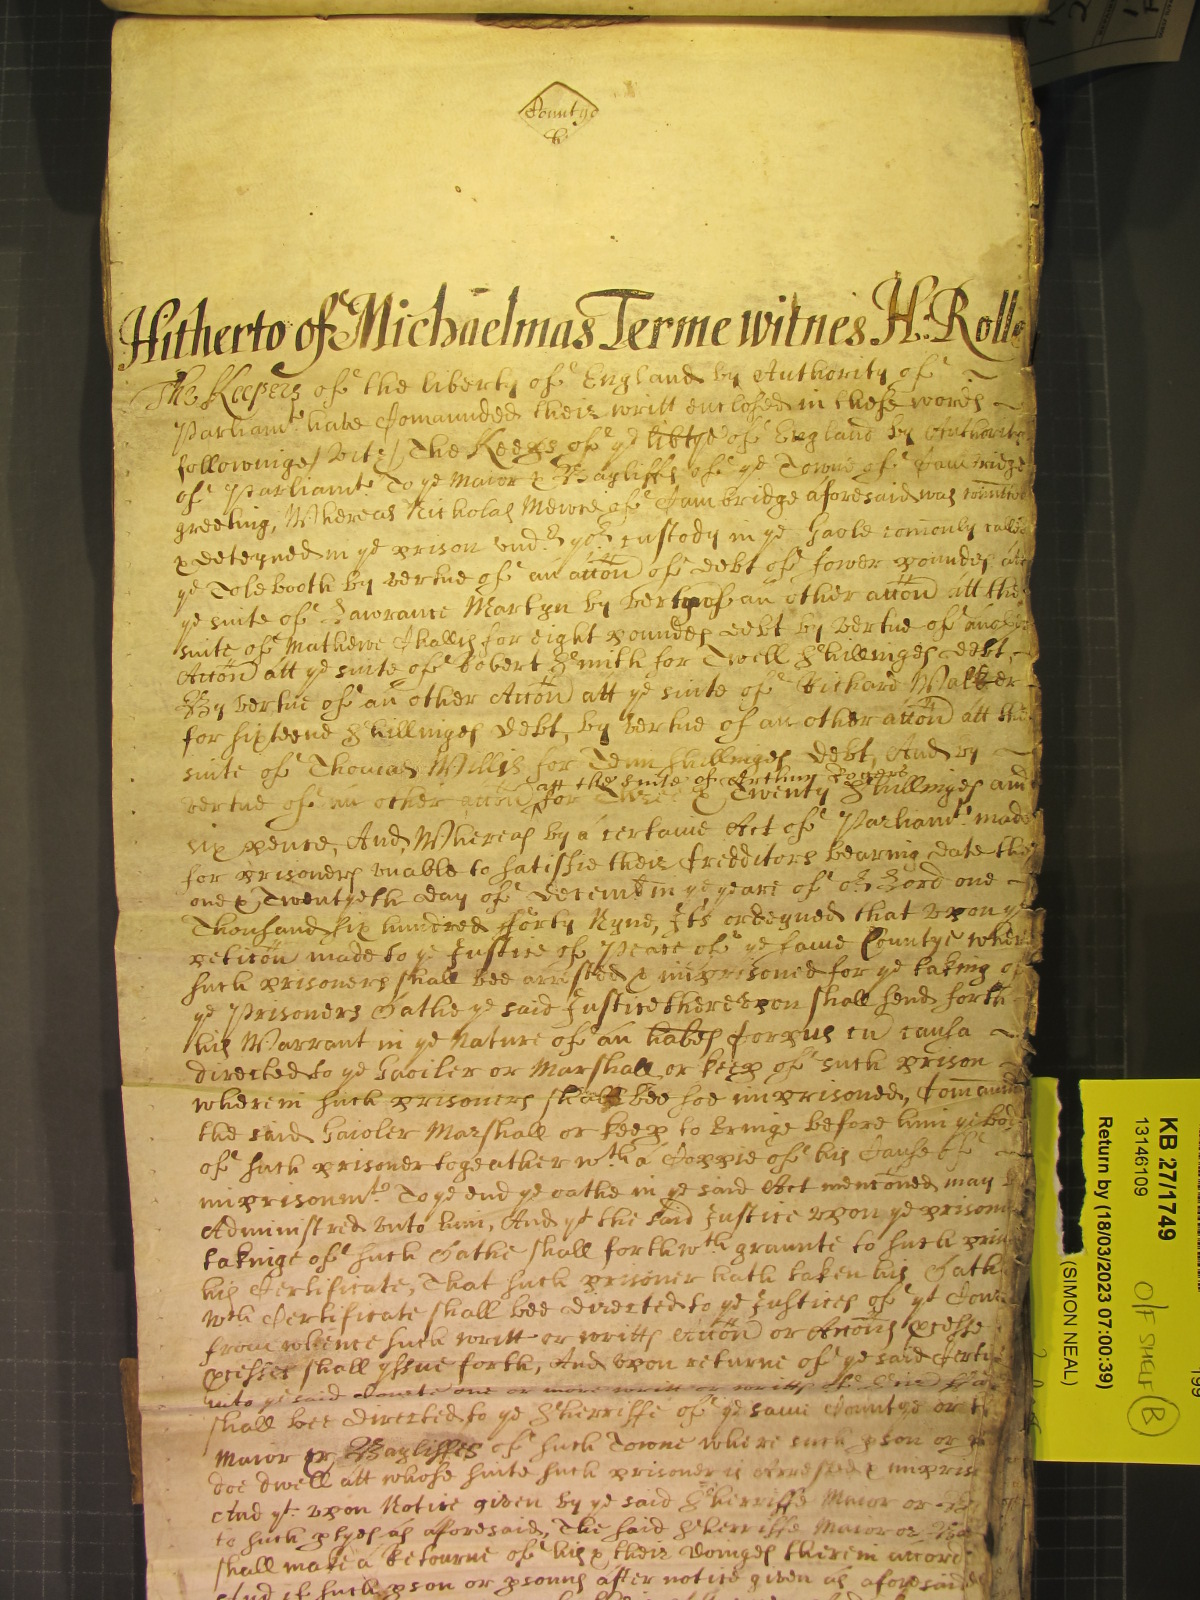 Countye
Hitherto of Michaelmas Terme witnes H: Rolle
The Keepers of the liberty of England by Authority of
Parliamt. have Comaunded their writt enclosed in these words
followinge, vizt: The Keeps of ye libtye of England by Authority
of Parliamt. To ye Maior & Bayliffs of ye Towne of Cambridge
greeting, Whereas Nicholas Mewce of Cambridge aforesaid was
& deteyned in ye prison undr yor custody in ye Gaole comonly called
ye Tolebooth by vertue of an accon of debt of fower poundes att
ye suite of Lawrance Martyn by vertue of an other accon att the
suite of Mathewe for eight poundes debt by vertue of another
Accon att ye suite of Robert Smith for Twell Shillinges debt,
By vertue of an other Accon att ye suite of Richard Walker
for sixteene Shillinges debt, by vertue of an other accon att the
suite of Thomas Willis for Tenn shillinges debt, And by
att the suite of Arthur Rogers
vertue of an other accon for Three & Twenty Shillinges and
six pence, And, Whereas by a certaine Act of Parliamt. made
for prisoners unable to satisfie their Credditors bearing date the
one & Twentyeth day of Decembr in ye yeare of or Lord one
Thousand six hundred forty Nyne, Its ordeyned that upon ye
peticon made to ye Justice of Peace of ye same Countye where
such prisoners shall bee arrested & imprisoned for ye taking of
ye Prisoners Oathe ye said Justice thereupon shall send forth
his Warrant in ye Nature of an habes Corpus cu causa
directed to ye Gaoiler or Marshall or keep of such prison
wherein such prisoners shall bee soe imprisoned, Comaund
the said Gaioler Marshall or keep to bringe before him ye bod
of such prisoner togeather wth a Coppie of his Cause of
imprisonmt. To ye end ye oathe in ye said Act mentoned may
Administred unto him, And yt the said Justice upon ye prison
takinge of such Oathe shall forthwth graunte to such pris
his Certificate, That such prisoner hath taken his Oath
wch Certificate shall bee directed to ye Justices of yt Cou
from whence such writt or writts Accon or Accons pcesse
pcesses shall yssue forth, And upon returne of ye said Certi
into ye said Courte one or more writt or writts
shall bee directed to ye Sherriffe of ye same Countye or th
Maior or Bayliffes of such Towne where such pson or p
doe dwell att whose suite such prisoner is Arrested & impris
And yt upon Notice given by ye said Sherriffe Maior or Ba
to such ptyes as aforesaid, The said Sherriffe Maior or Ba
shall make a Retourne of his & their doinges therein accord
And if such pson or psons after notice given as aforesaid
KB 27/1749
13146109
Return by (18/03/2023 07:00:39)
(SIMON NEAL)
O/F SHELF B
199